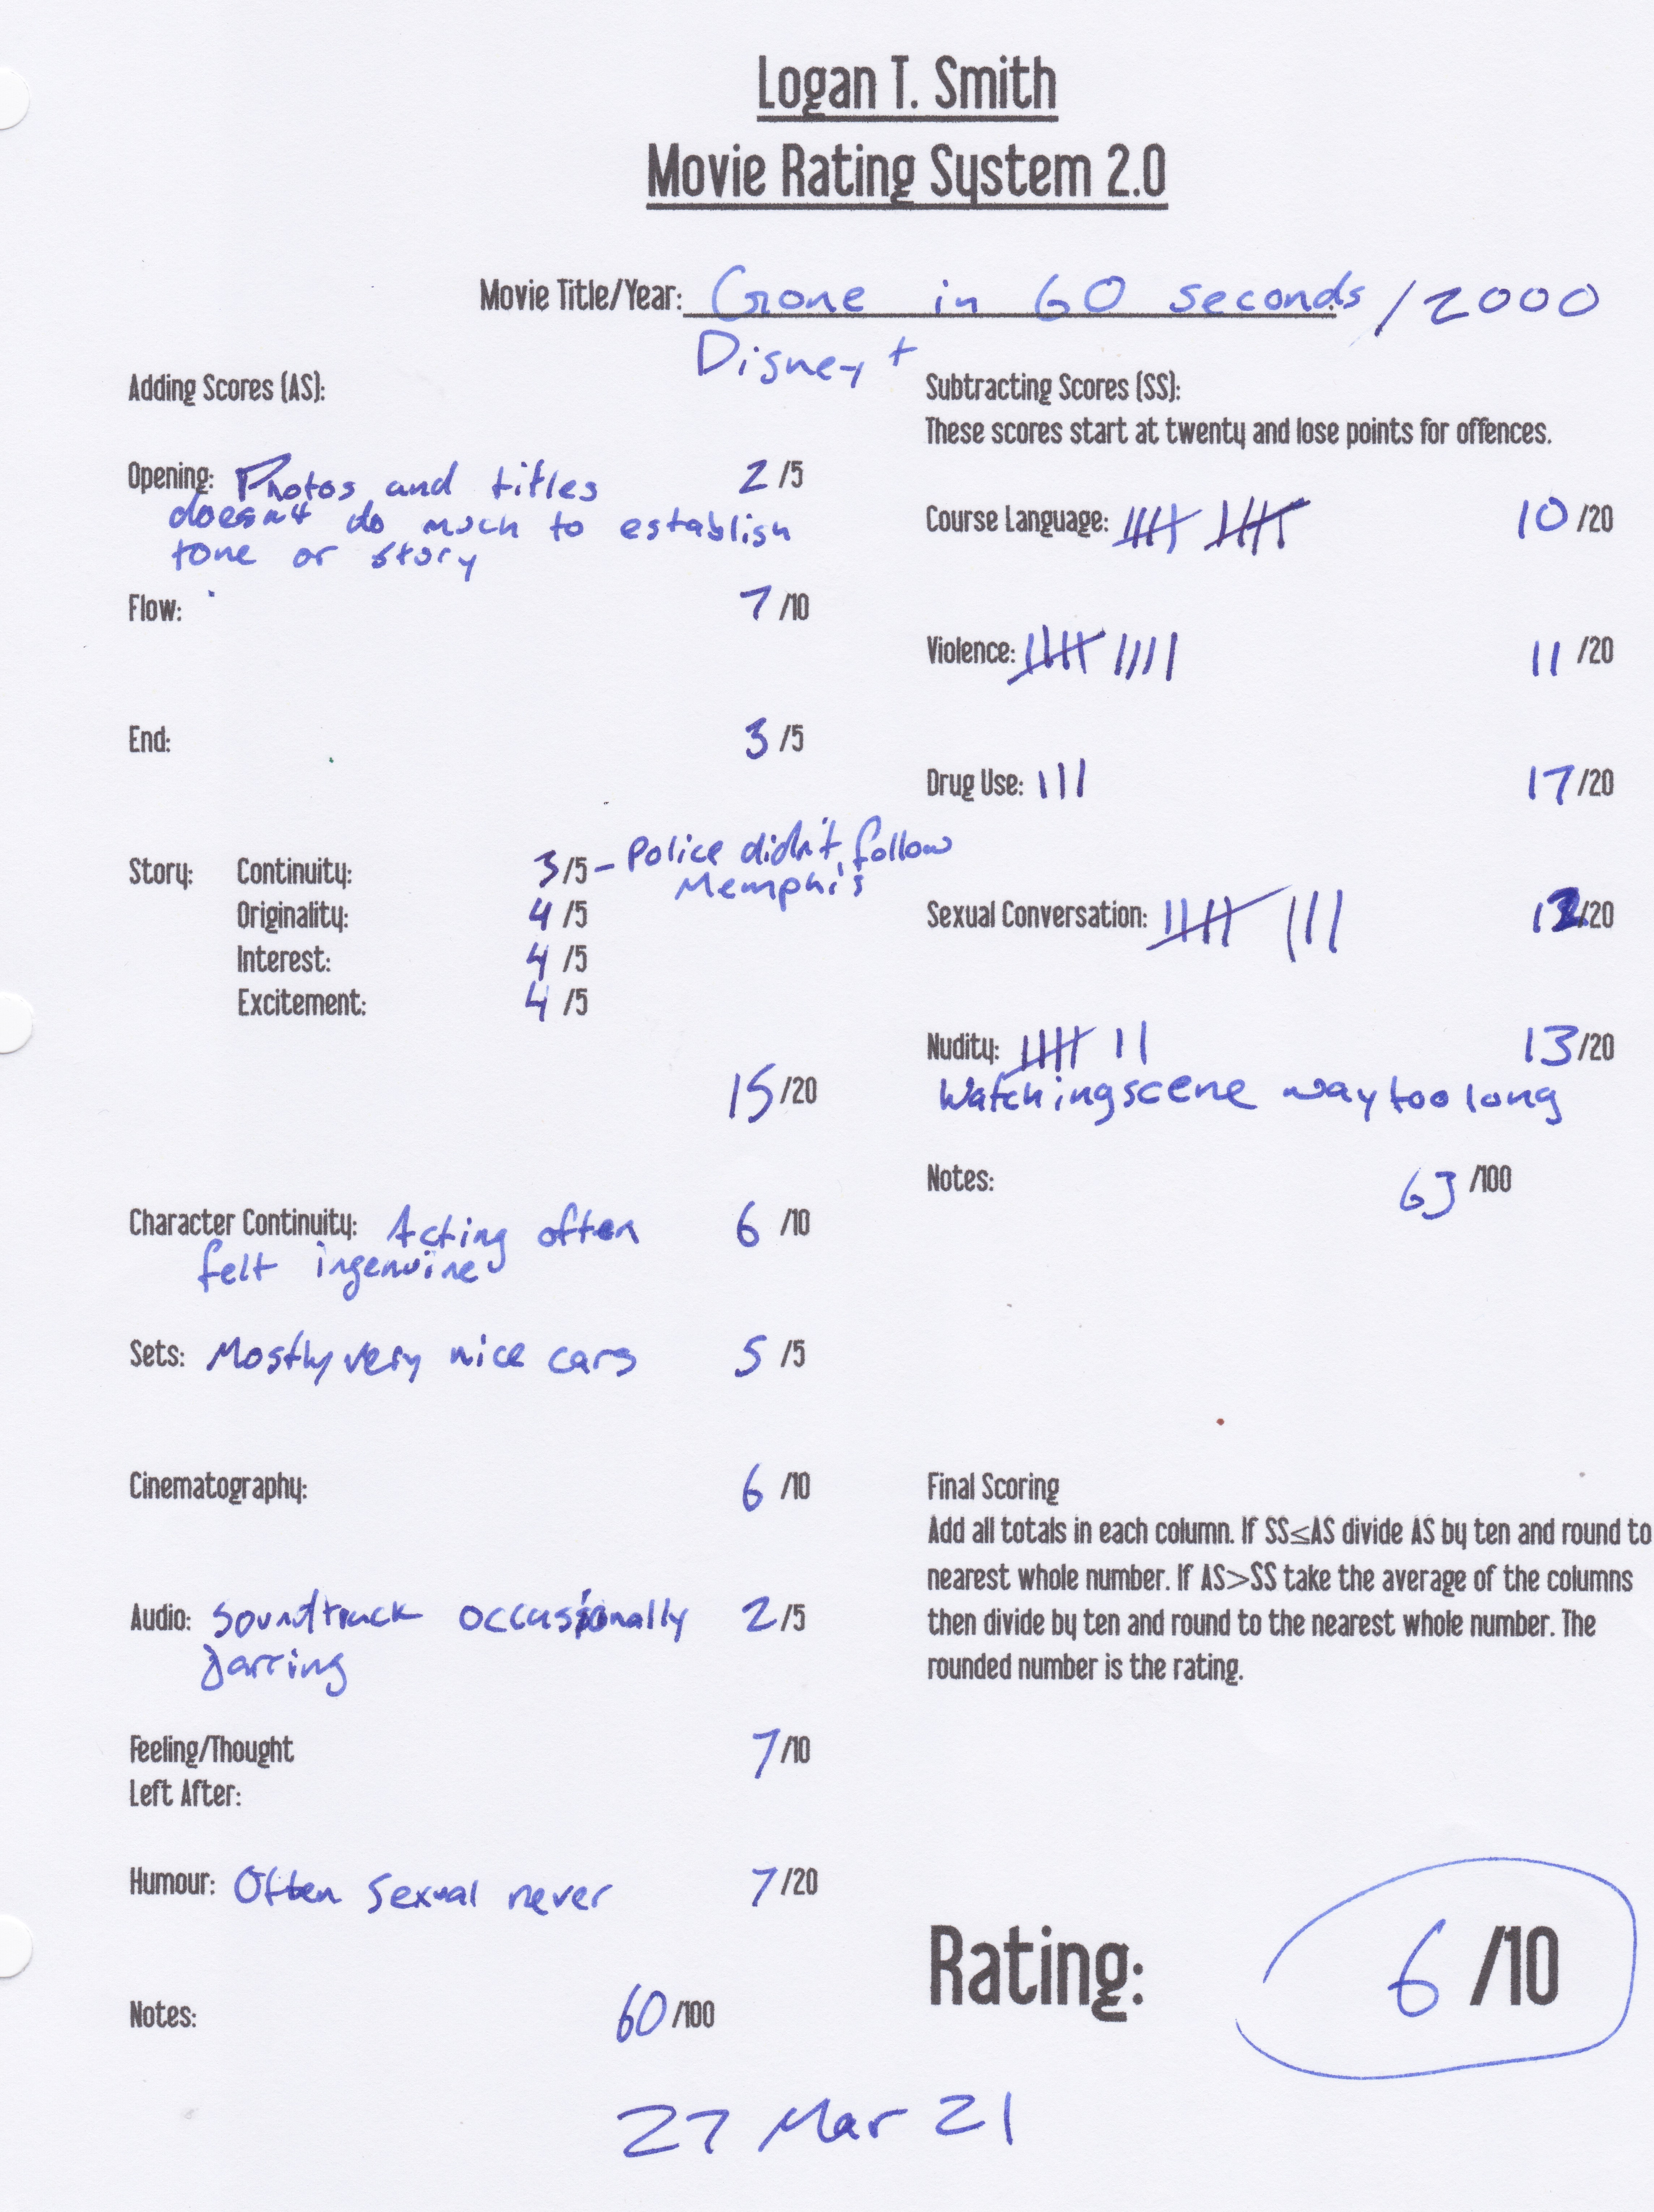 Logan T. Smith
Movie Rating System 2.0
Movie Title/Year: Gone in 60 seconds / 2000
Disney +
Adding Scores (AS):
Opening: Photos and titles 2 /5
doesnt do much to establish
tone or story
Flow: 7 /10
End: 3 /5
Story: Continuity: 3 /5 - Police didn't follow
Memphis
Originality: 4 /5
Interest: 4 /5
Excitement: 4 /5
15 /20
Character Continuity: Acting often 6 /10
felt ingenuine
Sets: Mostly very nice cars 5 /5
Cinematography: 6 /10
Audio: Soundtrack occasionally 2 /5
jarring
Feeling/Thought 7 /10
Left After:
Humour: Often sexual never 7 /20
Notes: 60 /100
Subtracting Scores (SS):
These scores start at twenty and lose points for offences.
Course Language: 10 /20
Violence: 11 /20
Drug Use: 17 /20
Sexual Conversation: 12 /20
Nudity: 13 /20
Watching scene way too long
Notes: 63 /100
Final Scoring
Add all totals in each column. If SS≤AS divide AS by ten and round to
nearest whole number. If AS>SS take the average of the columns
then divide by ten and round to the nearest whole number. The
rounded number is the rating.
Rating: 6 /10
27 Mar 21